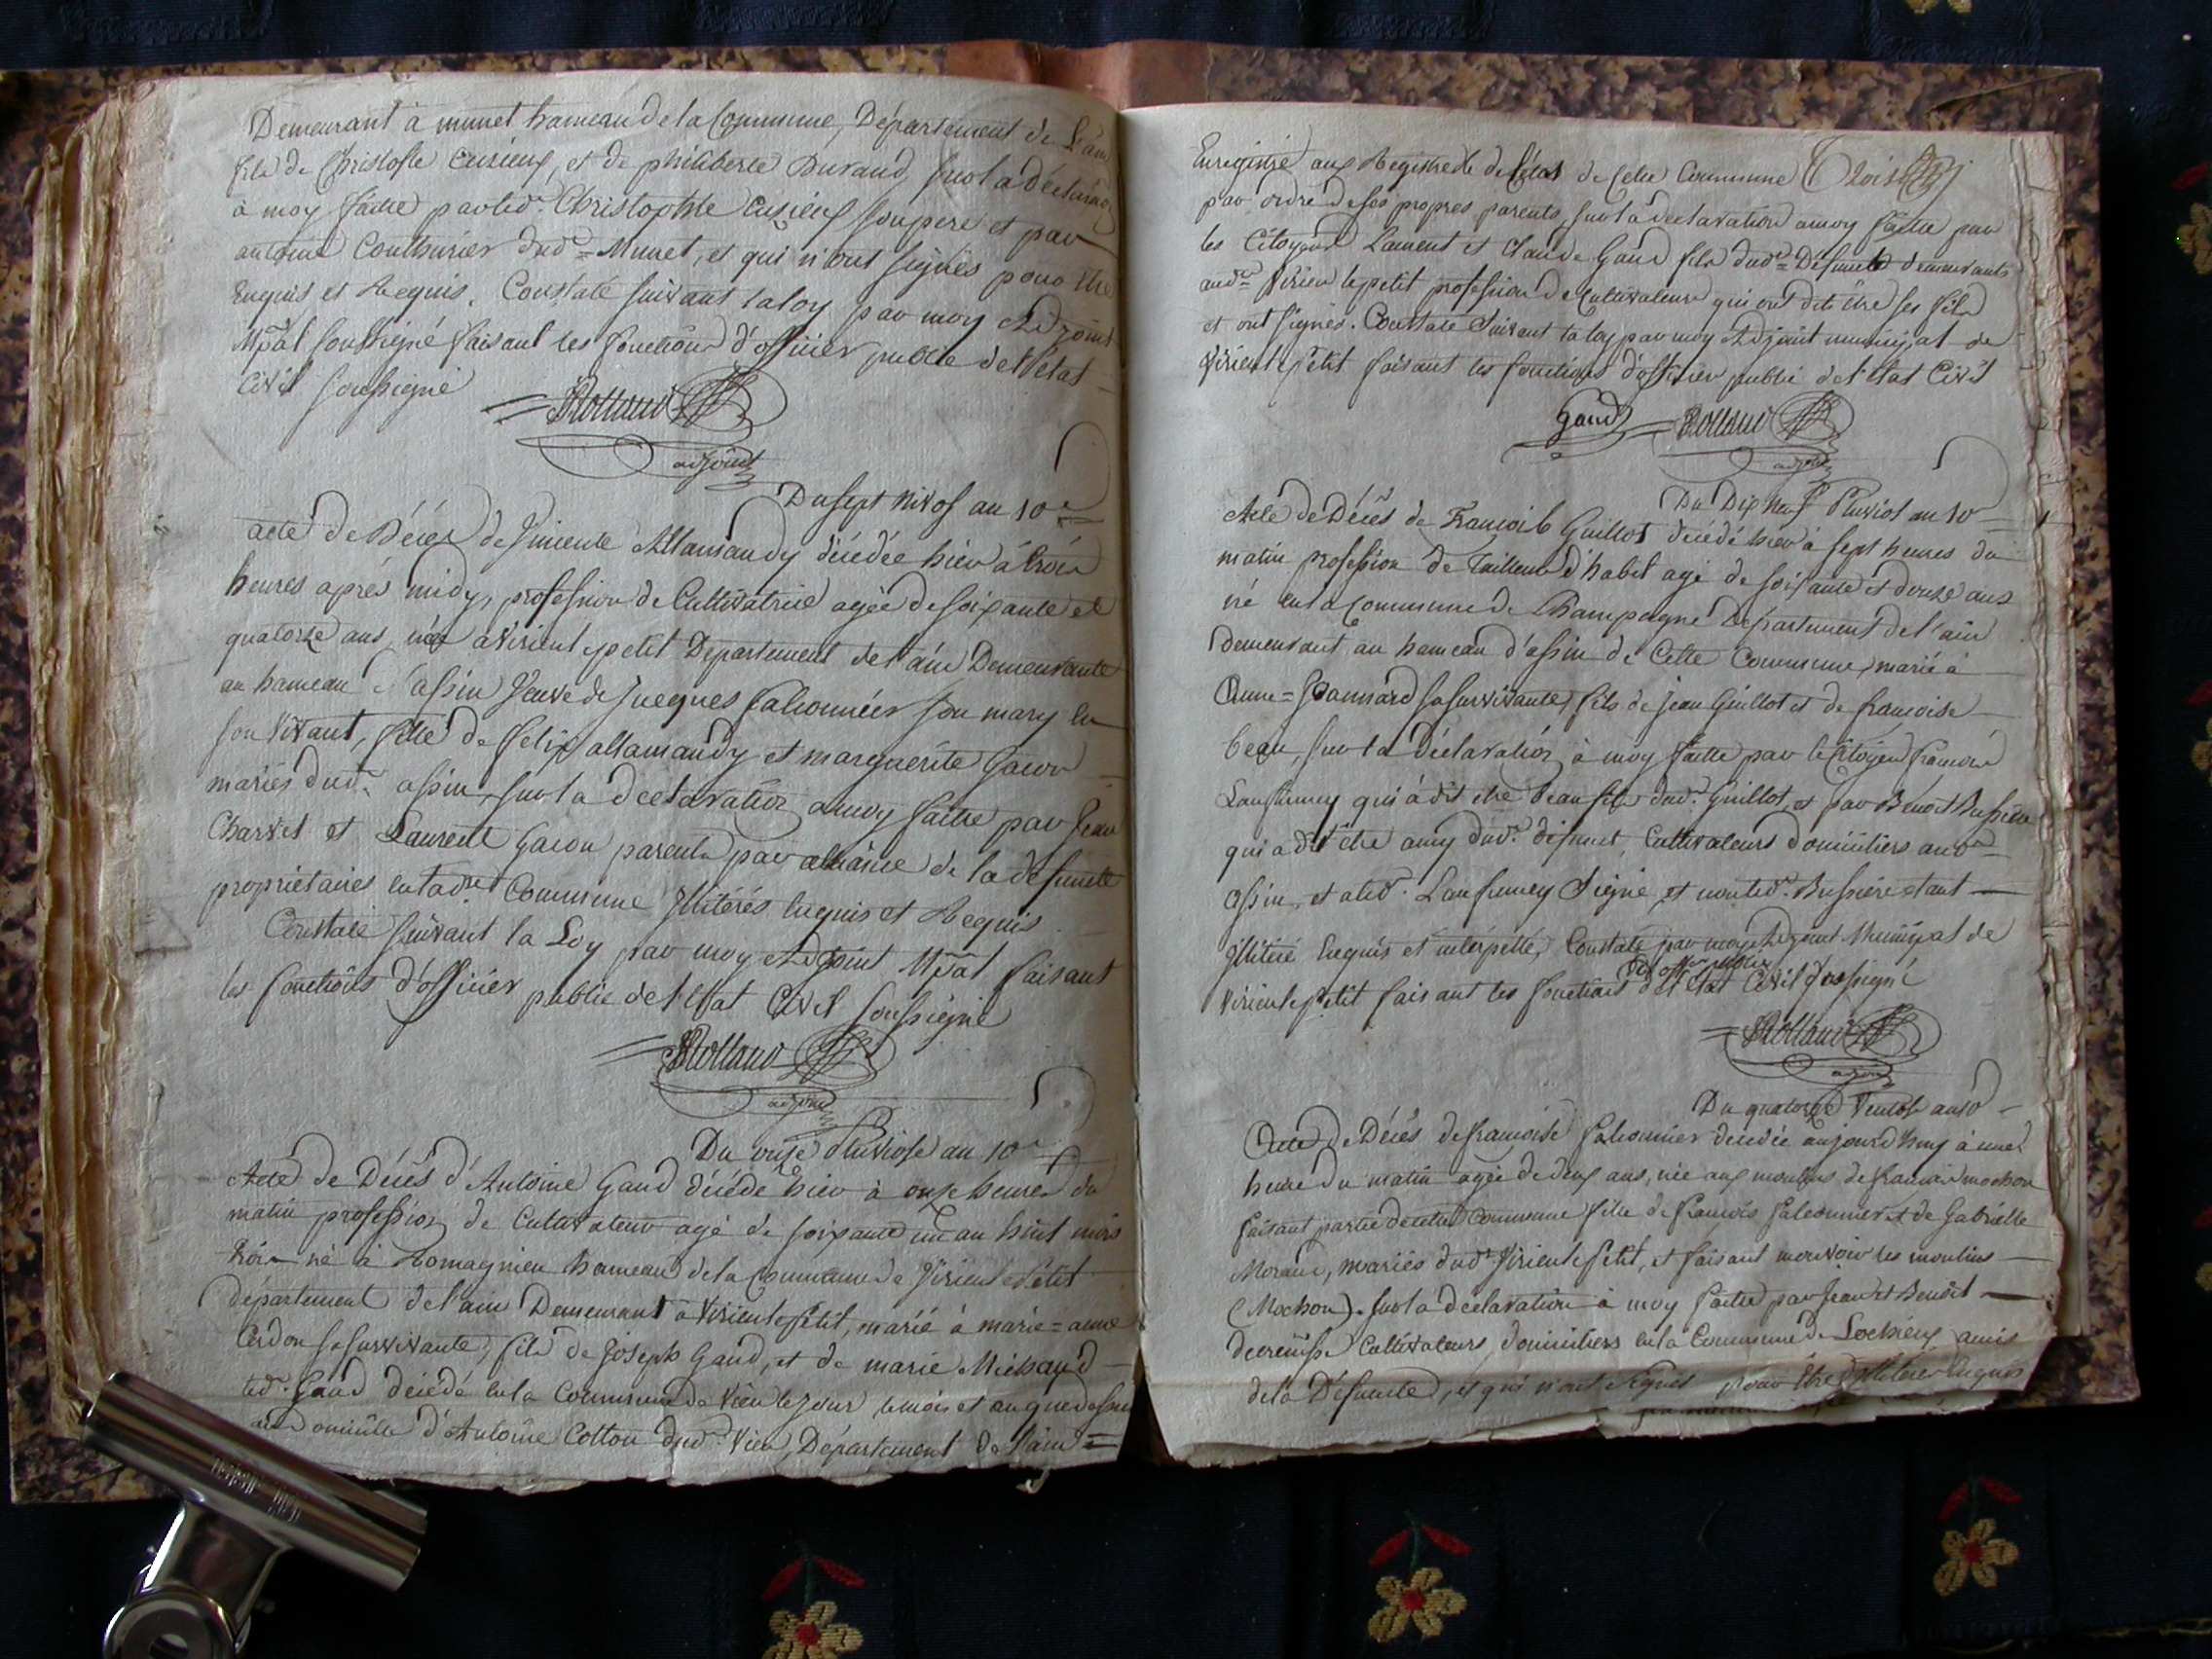 Demeurant à munet hameau de la Commune, Département de L'ain
fils de Christofle Cuzieux, et de philiberte Durand, sur la déclaration
à moy faitte par led. Christophle Cuzieux son pere et par
antoine Couthurier dud = Munet, et qui n'ont signés pour être
Enquis et Requis. Constaté suivant la loy par moy Adjoint
Mpal soussigné faisant les fonctions d'officier public de l'état
Civil soussigné
Rolland
adjoint
Du sept Nivos an 10e
acte de Décès de Jimiente Allamandy décédée hier à trois
heures aprés midy, profession de Cultivatrice agée de soixante et
quatorze ans née a virieu le petit Departement de l'ain Demeurante
au hameau d'assin Veuve de Jacques falconnier son mary en
son Vivant, fille de felix allamandy et marguerite Gacon
mariés dud. assin, sur la declaration a moy faitte par Jean
Charvet et Laurent Gacon parents par alliance de la defunte
propriétaires en lad.te Commune Illitérés Enquis et Requis
Constaté suivant la Loy par moy Adjoint Mpal faisant
les fonctions d'officier public de l'etat Civil soussigné
Rolland
adjoint
Du onze Pluviose an 10e
Acte de Décès d'Antoine Gaud décédé hier à onze heures du
matin profession de Cultivateur agé de soixante un an huit mois
né à Romagnieu hameau de la Commune de Virieu le Petit
département de l'ain Demeurant à Virieu le Petit, marié à marie = anne
Cerdon sa survivante, fils de Joseph Gaud, et de marie Michaud
led. Gaud décédé en la Commune de Vieu le jour le mois et an que dessus
au Domicille d'Antoine Cotton dud. Vieu, Département de L'ain =
Enregistré aux Registres de l'état de Cette Commune Trois
par ordre de ses propres parents, sur la declaration a moy faitte par
les Citoyens Laurent et Claude Gaud fils dud = Defunct demeurants
aud = Virieu le petit profession de Cultivateurs qui ont dit être ses fils
et ont signés. Constaté Suivant la loy par moy Adjoint municipal de
Virieu le Petit faisant les fonctions d'officier public de l'etat Civil
Gaud Rolland
adjoint
Du Dix neuf Pluviot an 10
Acte de Décès de François Guillot décédé hier à sept heures du
matin profession de Tailleur d'habit agé de soixante et douze ans
né en la Commune de Champagne Département de l'ain
Demeurant au hameau d'assin de Cette Commune, marié à
Anne = sa survivante, fils de Jean Guillot et de françoise
beau, sur la Déclaration à moy faitte par le Citoyen françois
qui à dit etre beau fils dud. Guillot, et par Benoit Bussiere
qui a dit être amy dud. défunct, Cultivateurs domiciliers aud
assin, et a led. signé, et non led. Bussiere étant
Illitéré Enquis et interpellé, Constaté par moy Adjoint Municipal de
Virieu le petit faisant les fonctions d'officier public de l'état Civil soussigné
Rolland
adjoint
Du quatorze Ventose an 10
Acte de Décès de françoise falconnier décédée aujourd'huy à une
heure du matin agée de deux ans, née aux moulins de françois mochon
faisant partie de cette Commune fille de françois falconnier et de Gabrielle
Moraud, mariés dud Virieu le Petit, et faisant mouvoir les moulins
(Mochon). sur la déclaration à moy faitte par Jean et Benoît
decreusse Cultivateurs, domiciliers en la Commune de Lochieux amis
de la Défuncte, et qui n'ont signés pour être Illitérés Enquis